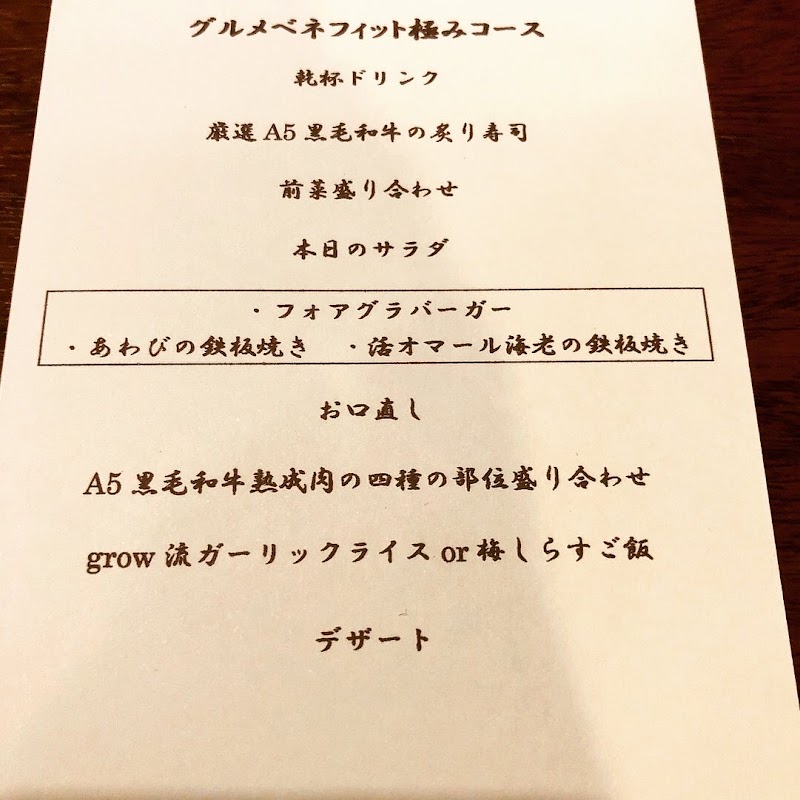 グルメベネフィット極みコース
乾杯ドリンク
厳選A5黒毛和牛の炙り寿司
前菜盛り合わせ
本日のサラダ
・フォアグラバーガー
・あわびの鉄板焼き ・活オマール海老の鉄板焼き
お口直し
A5黒毛和牛熟成肉の四種の部位盛り合わせ
grow流ガーリックライスor梅しらすご飯
デザート